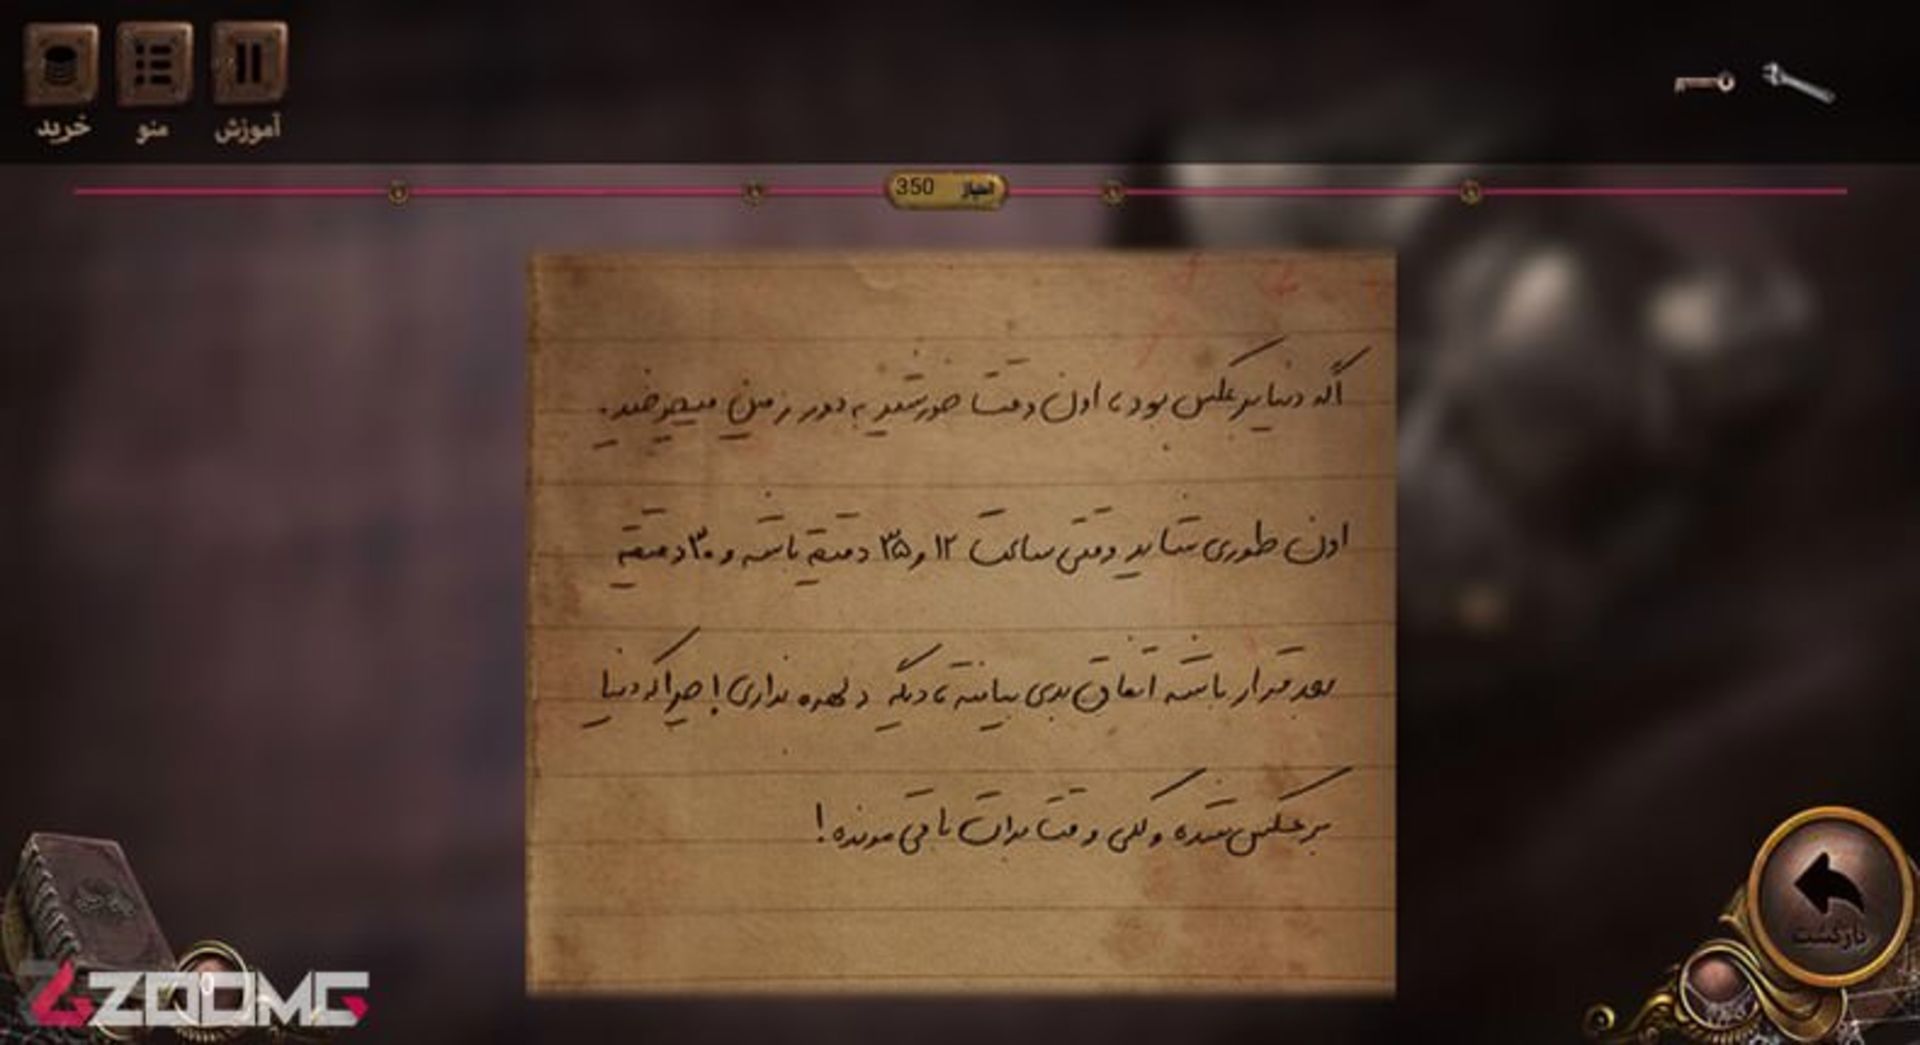 خرید
منو
آموزش
350 امتیاز
اگه دنیا برعکس بود، اون وقت خورشید به دور زمین میچرخید.
اون طوری شاید وقتی ساعت ۱۲ و ۳۵ دقیقه باشه و ۳۰ دقیقه
بعد قرار باشه اتفاق بدی بیافته، دیگه دلهره نداری! چرا که دنیا
برعکس شده و کلی وقت برات باقی مونده!
بازگشت
ZOOMG